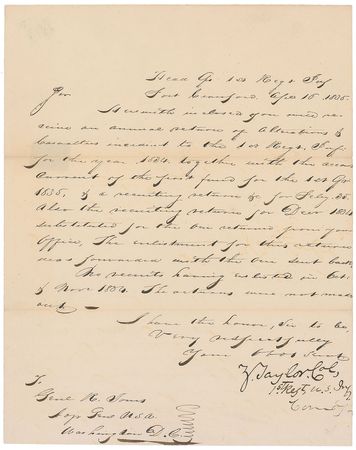 Head Qr. 1st Regt. Inf
Fort Crawford. Apl 15. 1835.
Sir
Herewith inclosed you will re
ceive an annual return of Alterations &
Casualties incident to the 1st Regt. Inf.
for the year 1834. together with the acco
current of the post fund for the 1st Qr
1835, & a recruiting return for Feby. 35.
also the recruiting return for Decr 1834
substituted for the one returned from your
Office, The enlistment for this return
was forwarded with the one sent back
No recruits having enlisted in Oct.
& Novr 1834. The returns were not made
out
I have the honor, Sir to be,
Very respectfully
Your Obt Servt
Z. Taylor Col,
1st Regt U.S. Inf
To
Genl R. Jones
Genl U.S.A.
Washington D.C.